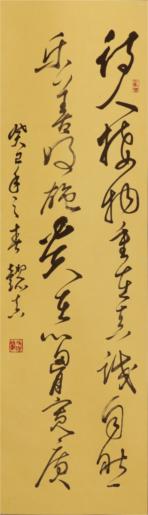 待人接物重在真诚自然
乐善好施贵在心胸宽广
癸巳年之春懿真